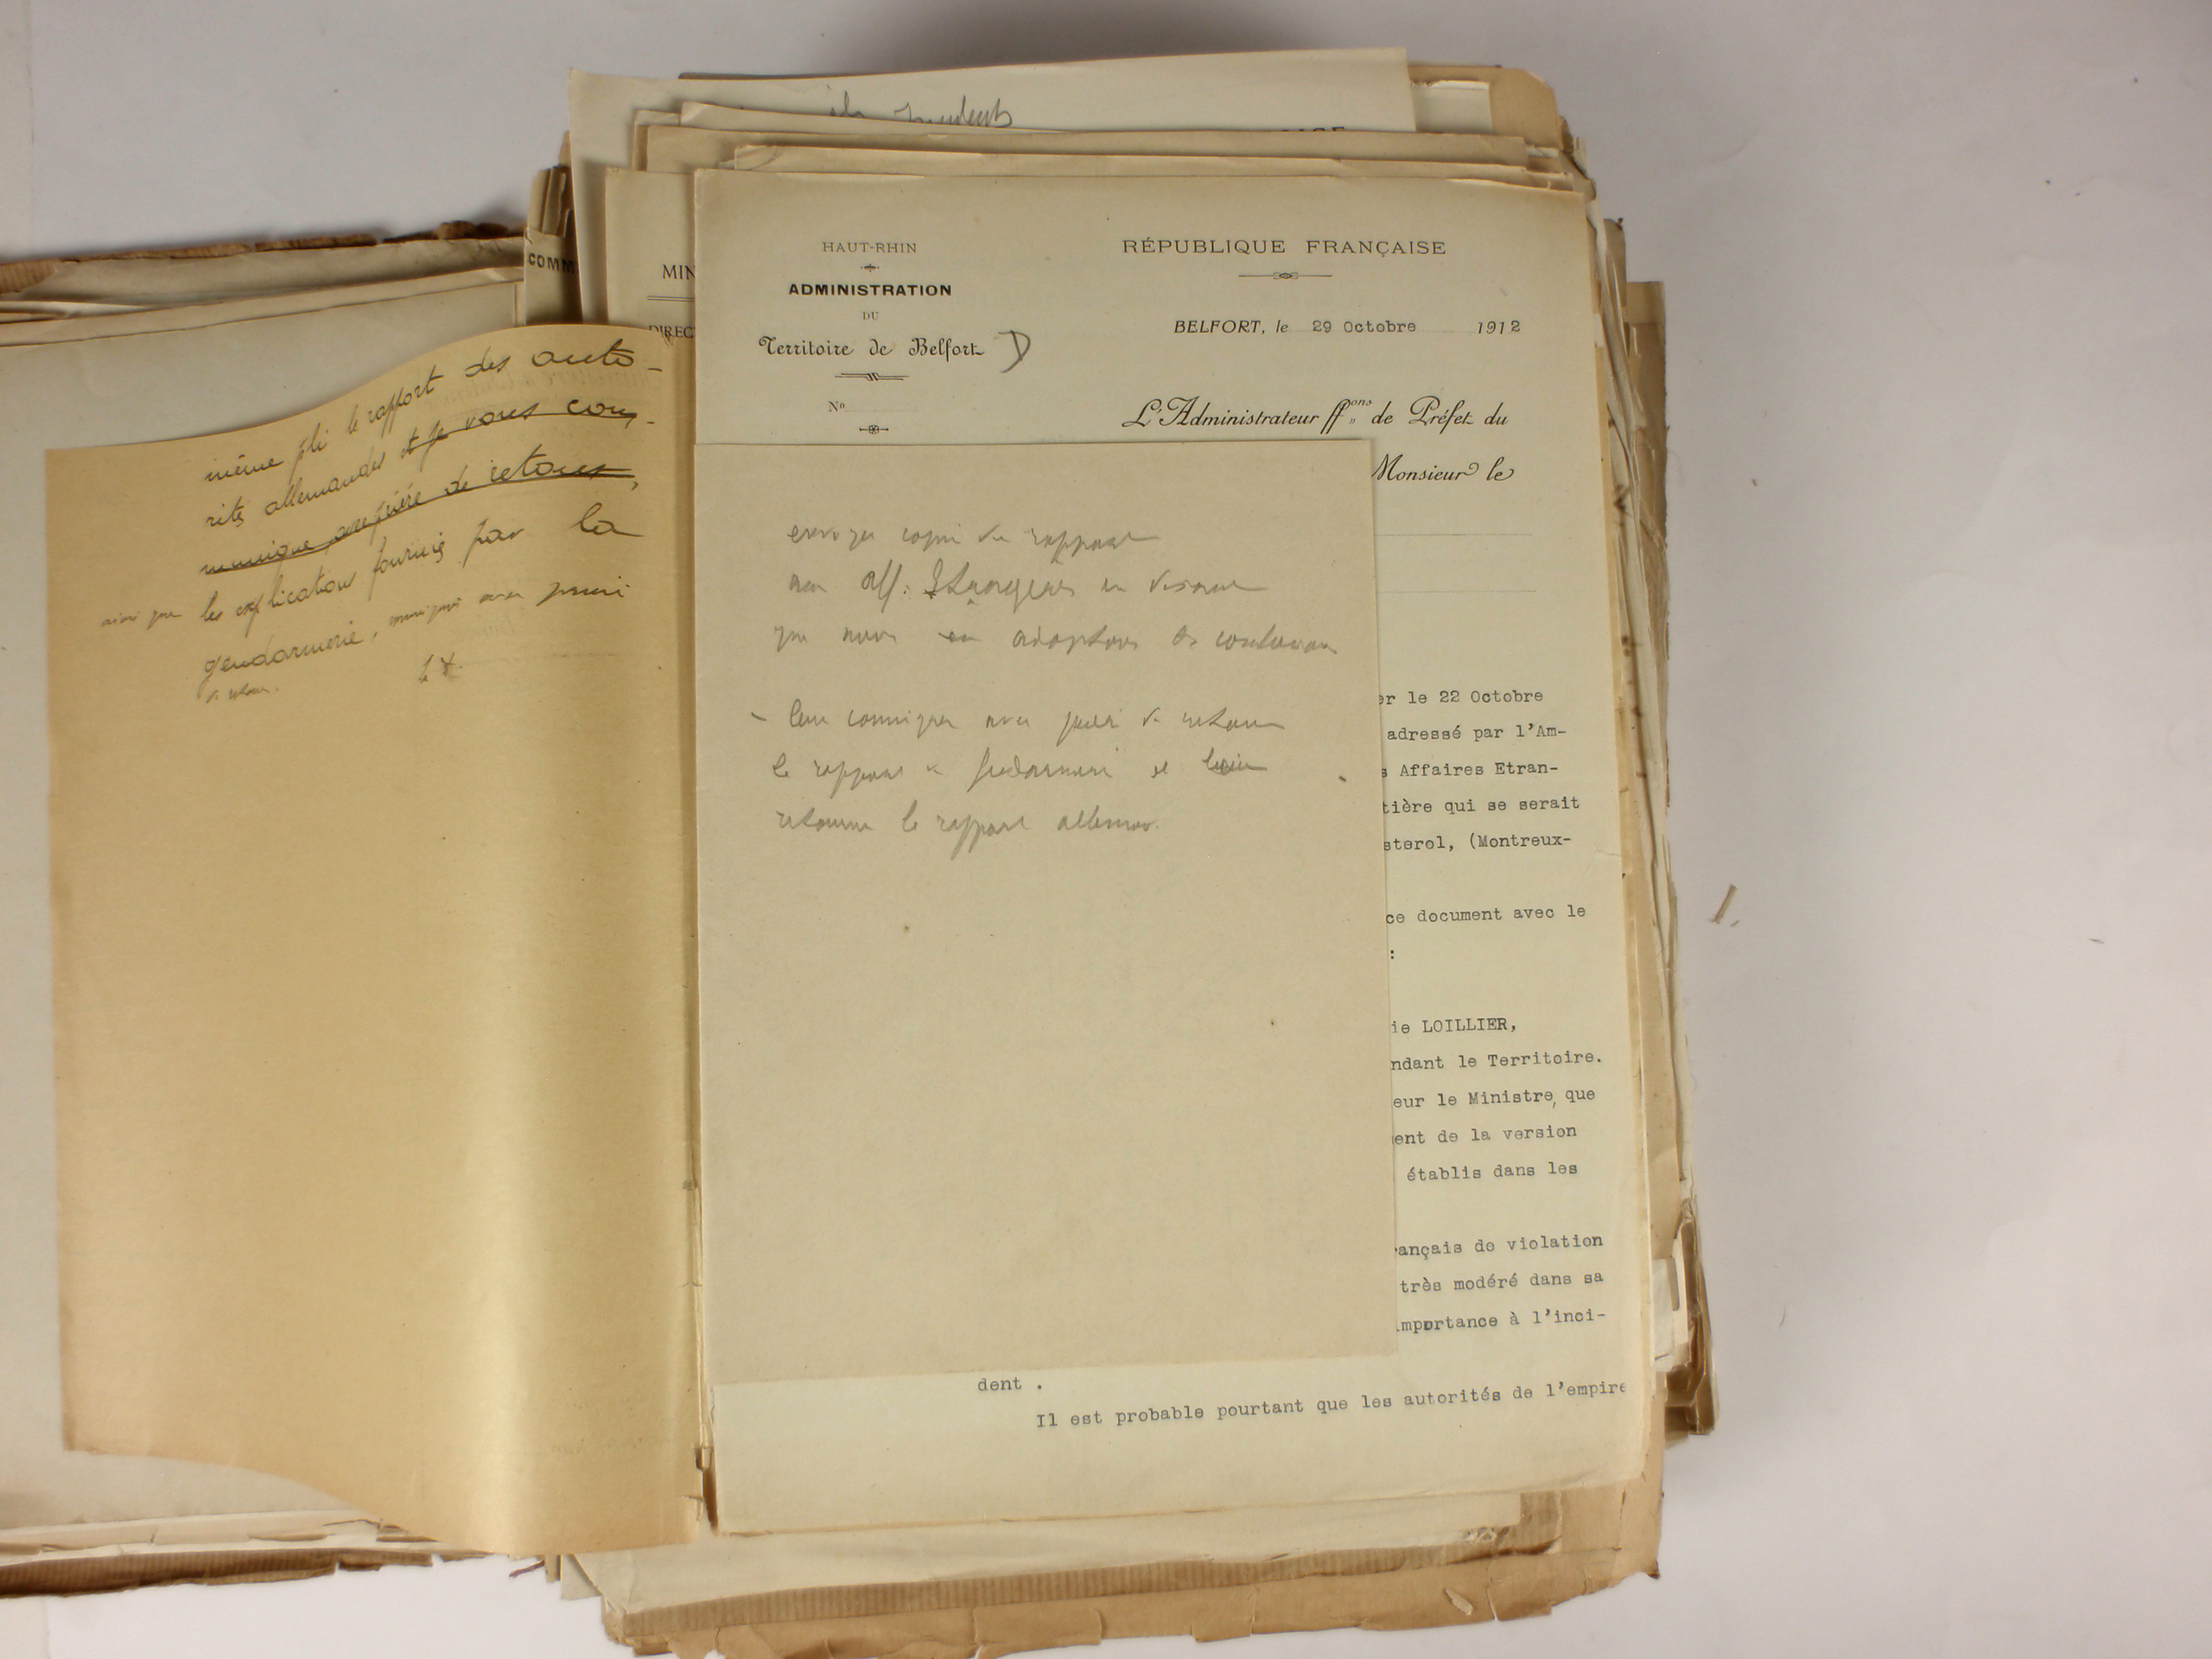 même pli le rapport des auto-
rités allemandes et je vous com-
munique, avec prière de retour,
ainsi que les explications fournies par la
gendarmerie, avec prière
de retour.
COMM
MIN
DIREC
HAUT-RHIN
ADMINISTRATION
DU
Territoire de Belfort
No
RÉPUBLIQUE FRANÇAISE
BELFORT, le 29 Octobre 1912
L'Administrateur ff.ons de Préfet du
Monsieur le
envoyer copie du rapport
aux Aff. Etrangères en disant
que nous en adoptons les conclusions
- leur communiquer avec prière de retour
le rapport de gendarmerie et
retourner le rapport allemand.
er le 22 Octobre
adressé par l'Am-
s Affaires Etran-
tière qui se serait
sterol, (Montreux-
ce document avec le
:
ie LOILLIER,
ndant le Territoire.
eur le Ministre, que
ent de la version
établis dans les
rançais de violation
très modéré dans sa
importance à l'inci-
dent .
Il est probable pourtant que les autorités de l'empire